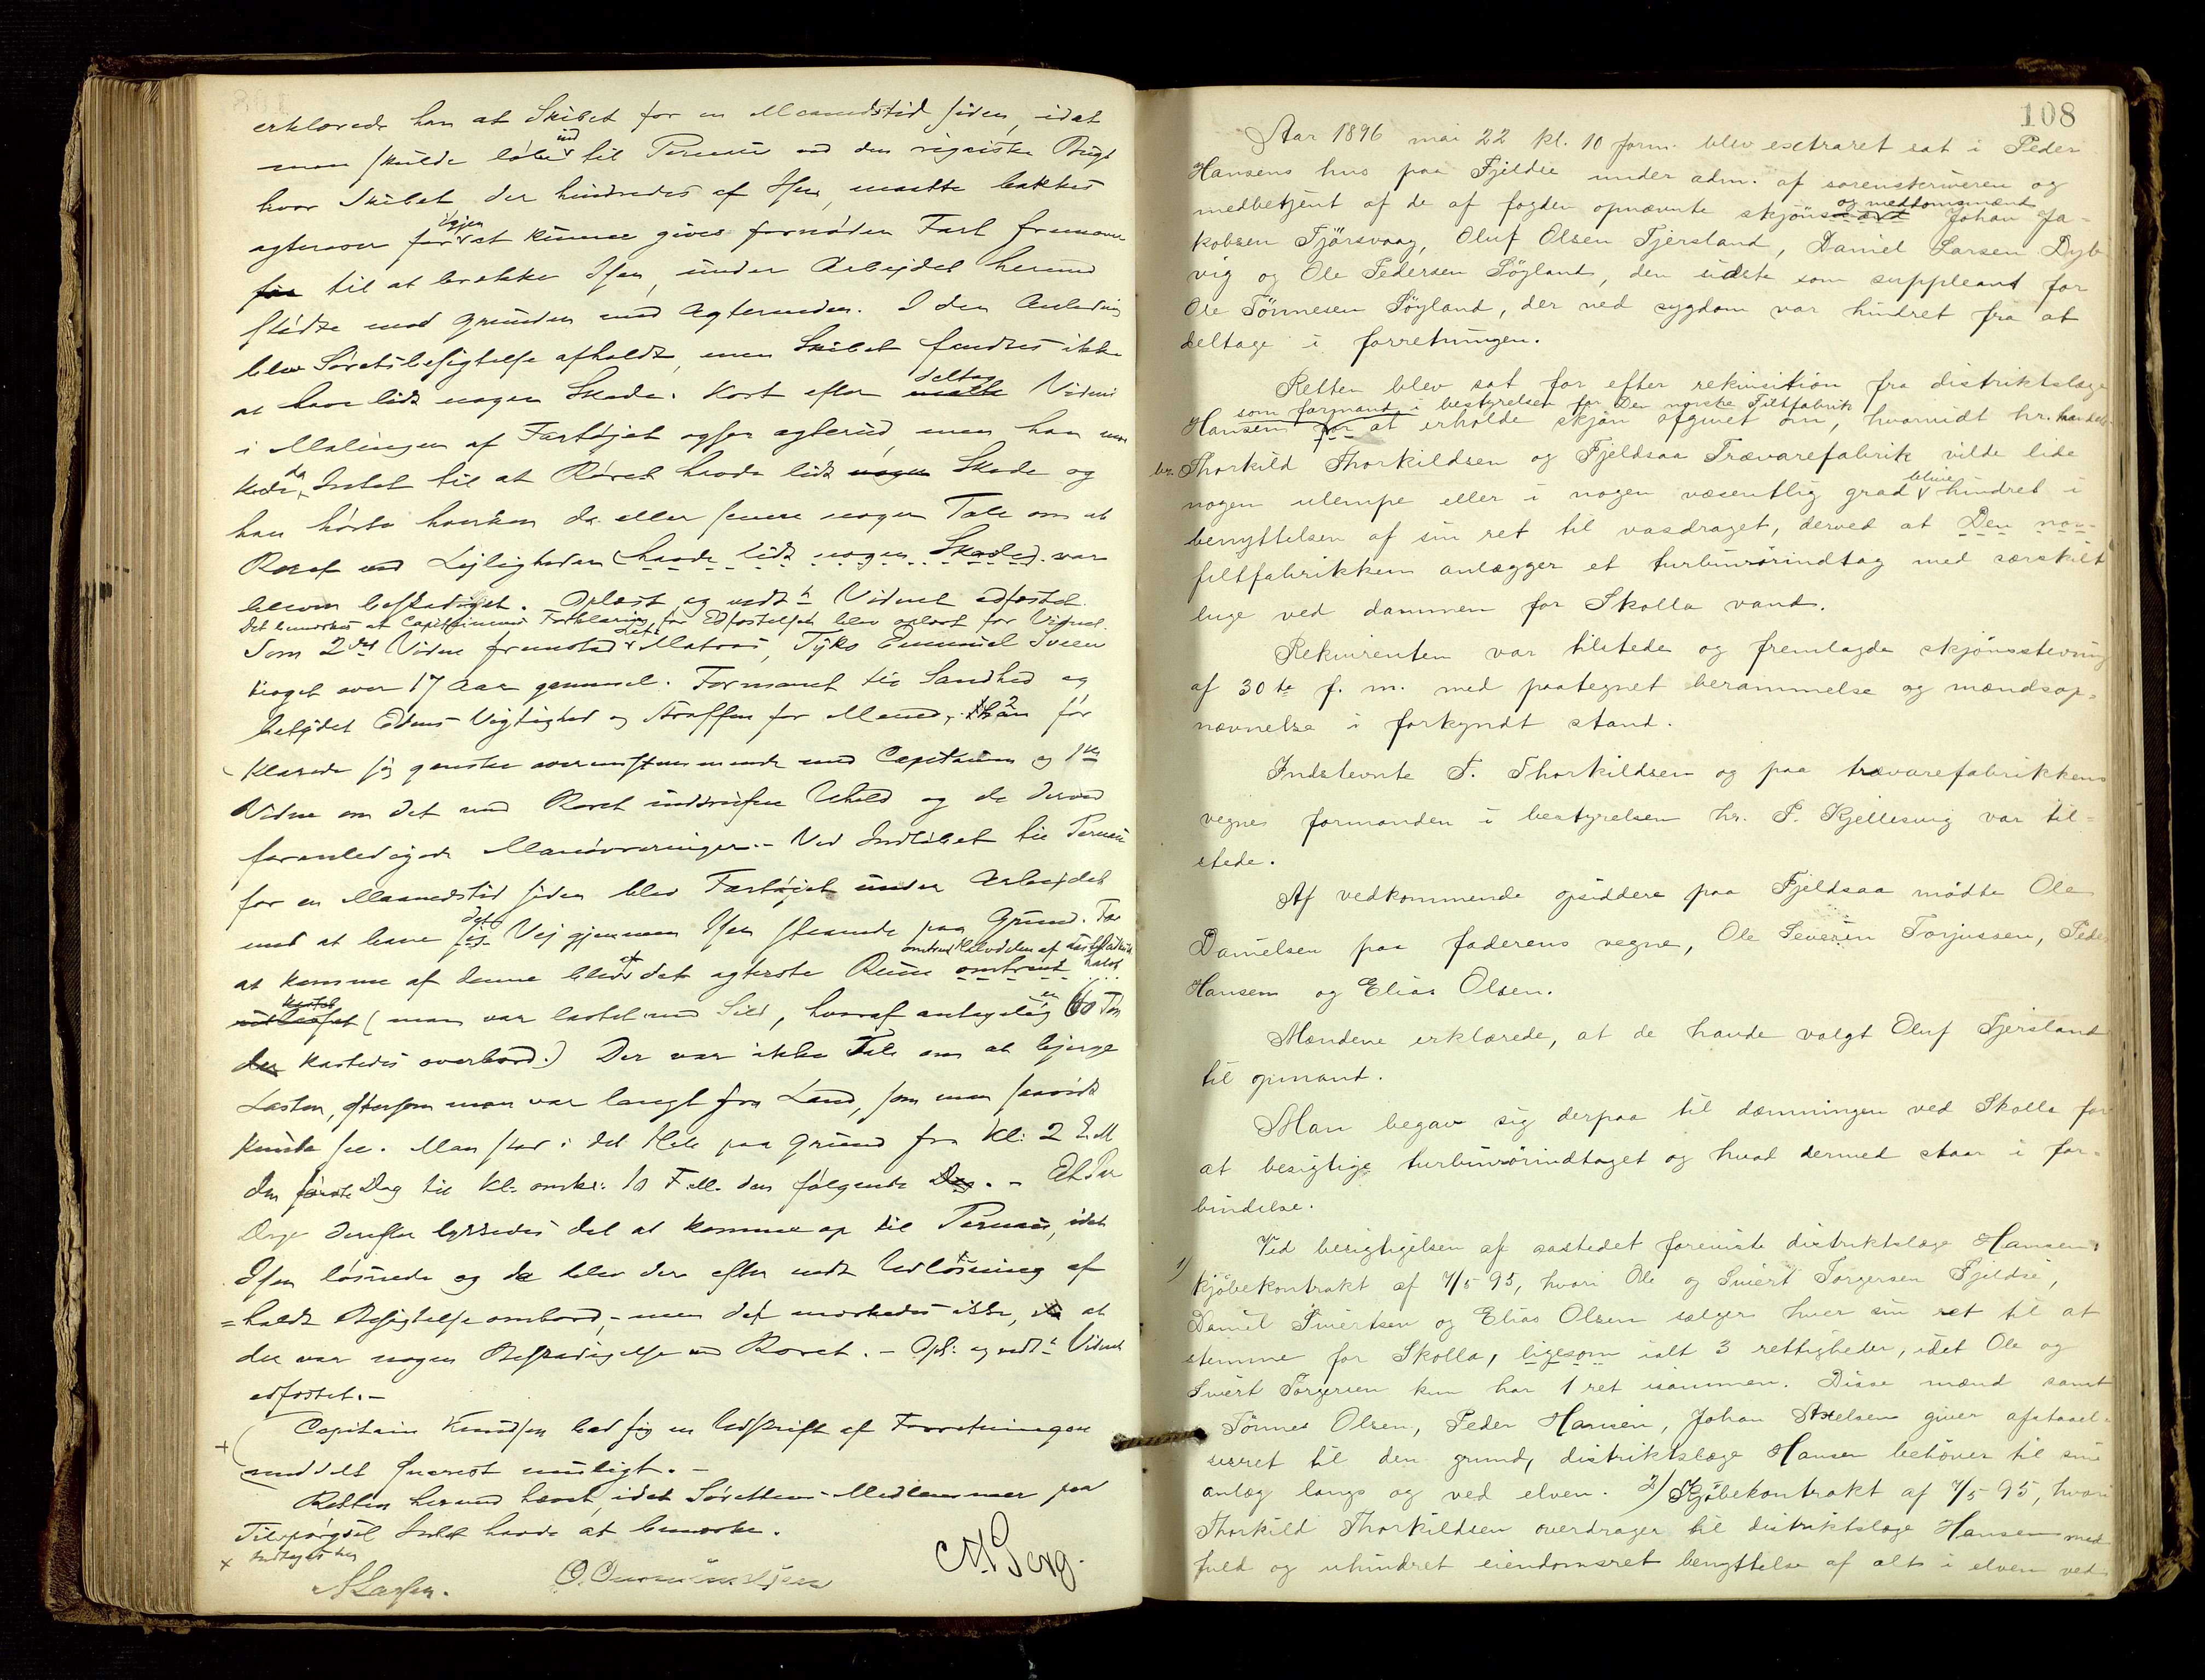 erklærede han at Skibet for en Maanedstid siden, idet
man skulde løbe ind til Pernau ved den rigaiske Bugt
hvor Skibet der hindredes af Isen, maatte bakkes
agterover for igjen at kunne gives fornøden Fart fremover
for til at brække Isen, under Arbejdet herved
stødte mod Grunden med Agterenden. I den Anledning
blev Søretsbesigtelse afholdt, men Skibet fandtes ikke
at have lidt nogen Skade. Kort efter maatte deltog Vidnet
i Malingen af Fartøjet ogsaa agterud, men han mær
kede da Intet til at Roret havde lidt nogen Skade og
han hørte hverken da eller senere nogen Tale om at
Roret ved Lejligheden (havde lidt nogen Skade) var
bleven beskadiget. Oplæst og vedt. Vidnet edfæstet.
Det bemærkes at Capitainens Forklaring, før Edfæstelsen blev oplæst for Vidnet.
Som 2det Vidne fremstod Let. Matros, Tyko Emanuel Sveen
noget over 17 Aar gammel. Formanet til Sandhed og
betydet Edens Vigtighed og Straffen for Mened, han for
klarede sig ganske overensstemmende med Capitainen og 1ste
Vidne om det med Roret indtrufne Uheld og de derved
foranledigede Manøvreringer. - Ved Indløbet til Pernau
for en Maanedstid siden blev Fartøjet under Arbejdet
med at bane sig det Vej gjennem Isen staaende paa Grund. For
at komme af denne blev af det agterste Rum omtrent omtrent Halvdelen af
udlosset kastet (man var lastet med Sild, hvoraf antagelig en 60 Tøn
der kastedes overbord.) Der var ikke Tale om at bjerge
Lasten, eftersom man var langt fra Land, som man saavidt
kunde see. Man stod i det Hele paa Grund fra Kl: 2 E.M
den første Dag til Kl. omkr. 10 F.M. den følgende Dag. - Et Par
Dage derefter lykkedes det at komme op til Pernau, idet
Isen løsnede og da blev der efter endt Udlosning af
=holdt Besigtelse ombord, - men det mærkedes ikke, at
der var nogen Beskadigelse ved Roret. - Opl. og vedt. Vidnet
edfæstet. -
Capitain Knudsen bad sig en Udskrift af Forretningen
meddelt snarest muligt. -
Retten herved hævet, idet Sørettens Medlemmer paa
Tilspørgsel Intet havde at bemærke.
x indtages her
A Larsen.
M. Berg.
108
Aar 1896 mai 22 kl. 10 form. blev extraret sat i Peder
Hansens hus paa Fjeldse under adm. af sorenskriveren og
medbetjent af de af fogden opnævnte skjønsmænd og meddomsmænd Johan Ja-
kobsen Tjörsvaag, Oluf Olsen Tjersland, Daniel Larsen Dyb-
vig og Ole Pedersen Søyland, den sidste som suppleant for
Ole Tønnesen Søyland, der ved sygdom var hindret fra at
deltage i forretningen.
Retten blev sat for efter rekvisition fra distriktslæge
Hansen som formand i bestyrelsen for Den norske Filtfabrik for at erholde skjøn afgivet om, hvorvidt hr. handels-
br. Thorkild Thorkildsen og Fjeldsaa Trævarefabrik vilde lide
nogen ulempe eller i nogen væsentlig grad blive hindret i
benyttelsen af sin ret til vasdraget, derved at Den nor-
filtfabrikken anlægger et turbinrörindtag med særskilt
luge ved dammen for Skolla vand.
Rekvirenten var tilstede og fremlagde skjønsstevning
af 30te f. m. med paategnet berammelse og mændsop-
nævnelse i forkyndt stand.
Indstevnte T. Thorkildsen og paa trævarefabrikkens
vegne formanden i bestyrelsen hr. P. Kjellesvig var til-
stede.
Af vedkommende opsiddere paa Fjeldsaa mødte Ole
Danielsen paa faderens vegne, Ole Severin Torjussen, Peder
Hansen og Elias Olsen.
Mændene erklærede, at de havde valgt Oluf Tjersland
til opmand.
Man begav sig derpaa til dæmningen ved Skolla for
at besigtige turbinrörindtaget og hvad dermed staar i for-
bindelse.
Ved besigtigelsen af aastedet foreviste distriktslæge Hansen:
1) kjøbekontrakt af 7/5 95, hvori Ole og Sivert Torgersen Fjeldse,
Daniel Sivertsen og Elias Olsen sælger hver sin ret til at
stemme for Skolla, ligesom ialt 3 rettigheder, idet Ole og
Sivert Torgersen kun har 1 ret isammen. Disse mænd samt
Tønnes Olsen, Peder Hansen, Johan Axelsen giver afstaael-
sesret til den grund, distriktslæge Hansen behöver til sine
anlæg langs og ved elven. 2) Kjøbekontrakt af 7/5 95, hvori
Thorkild Thorkildsen overdrager til distriktslæge Hansen med
fuld og uhindret eiendomsret benyttelse af alt i elven ved